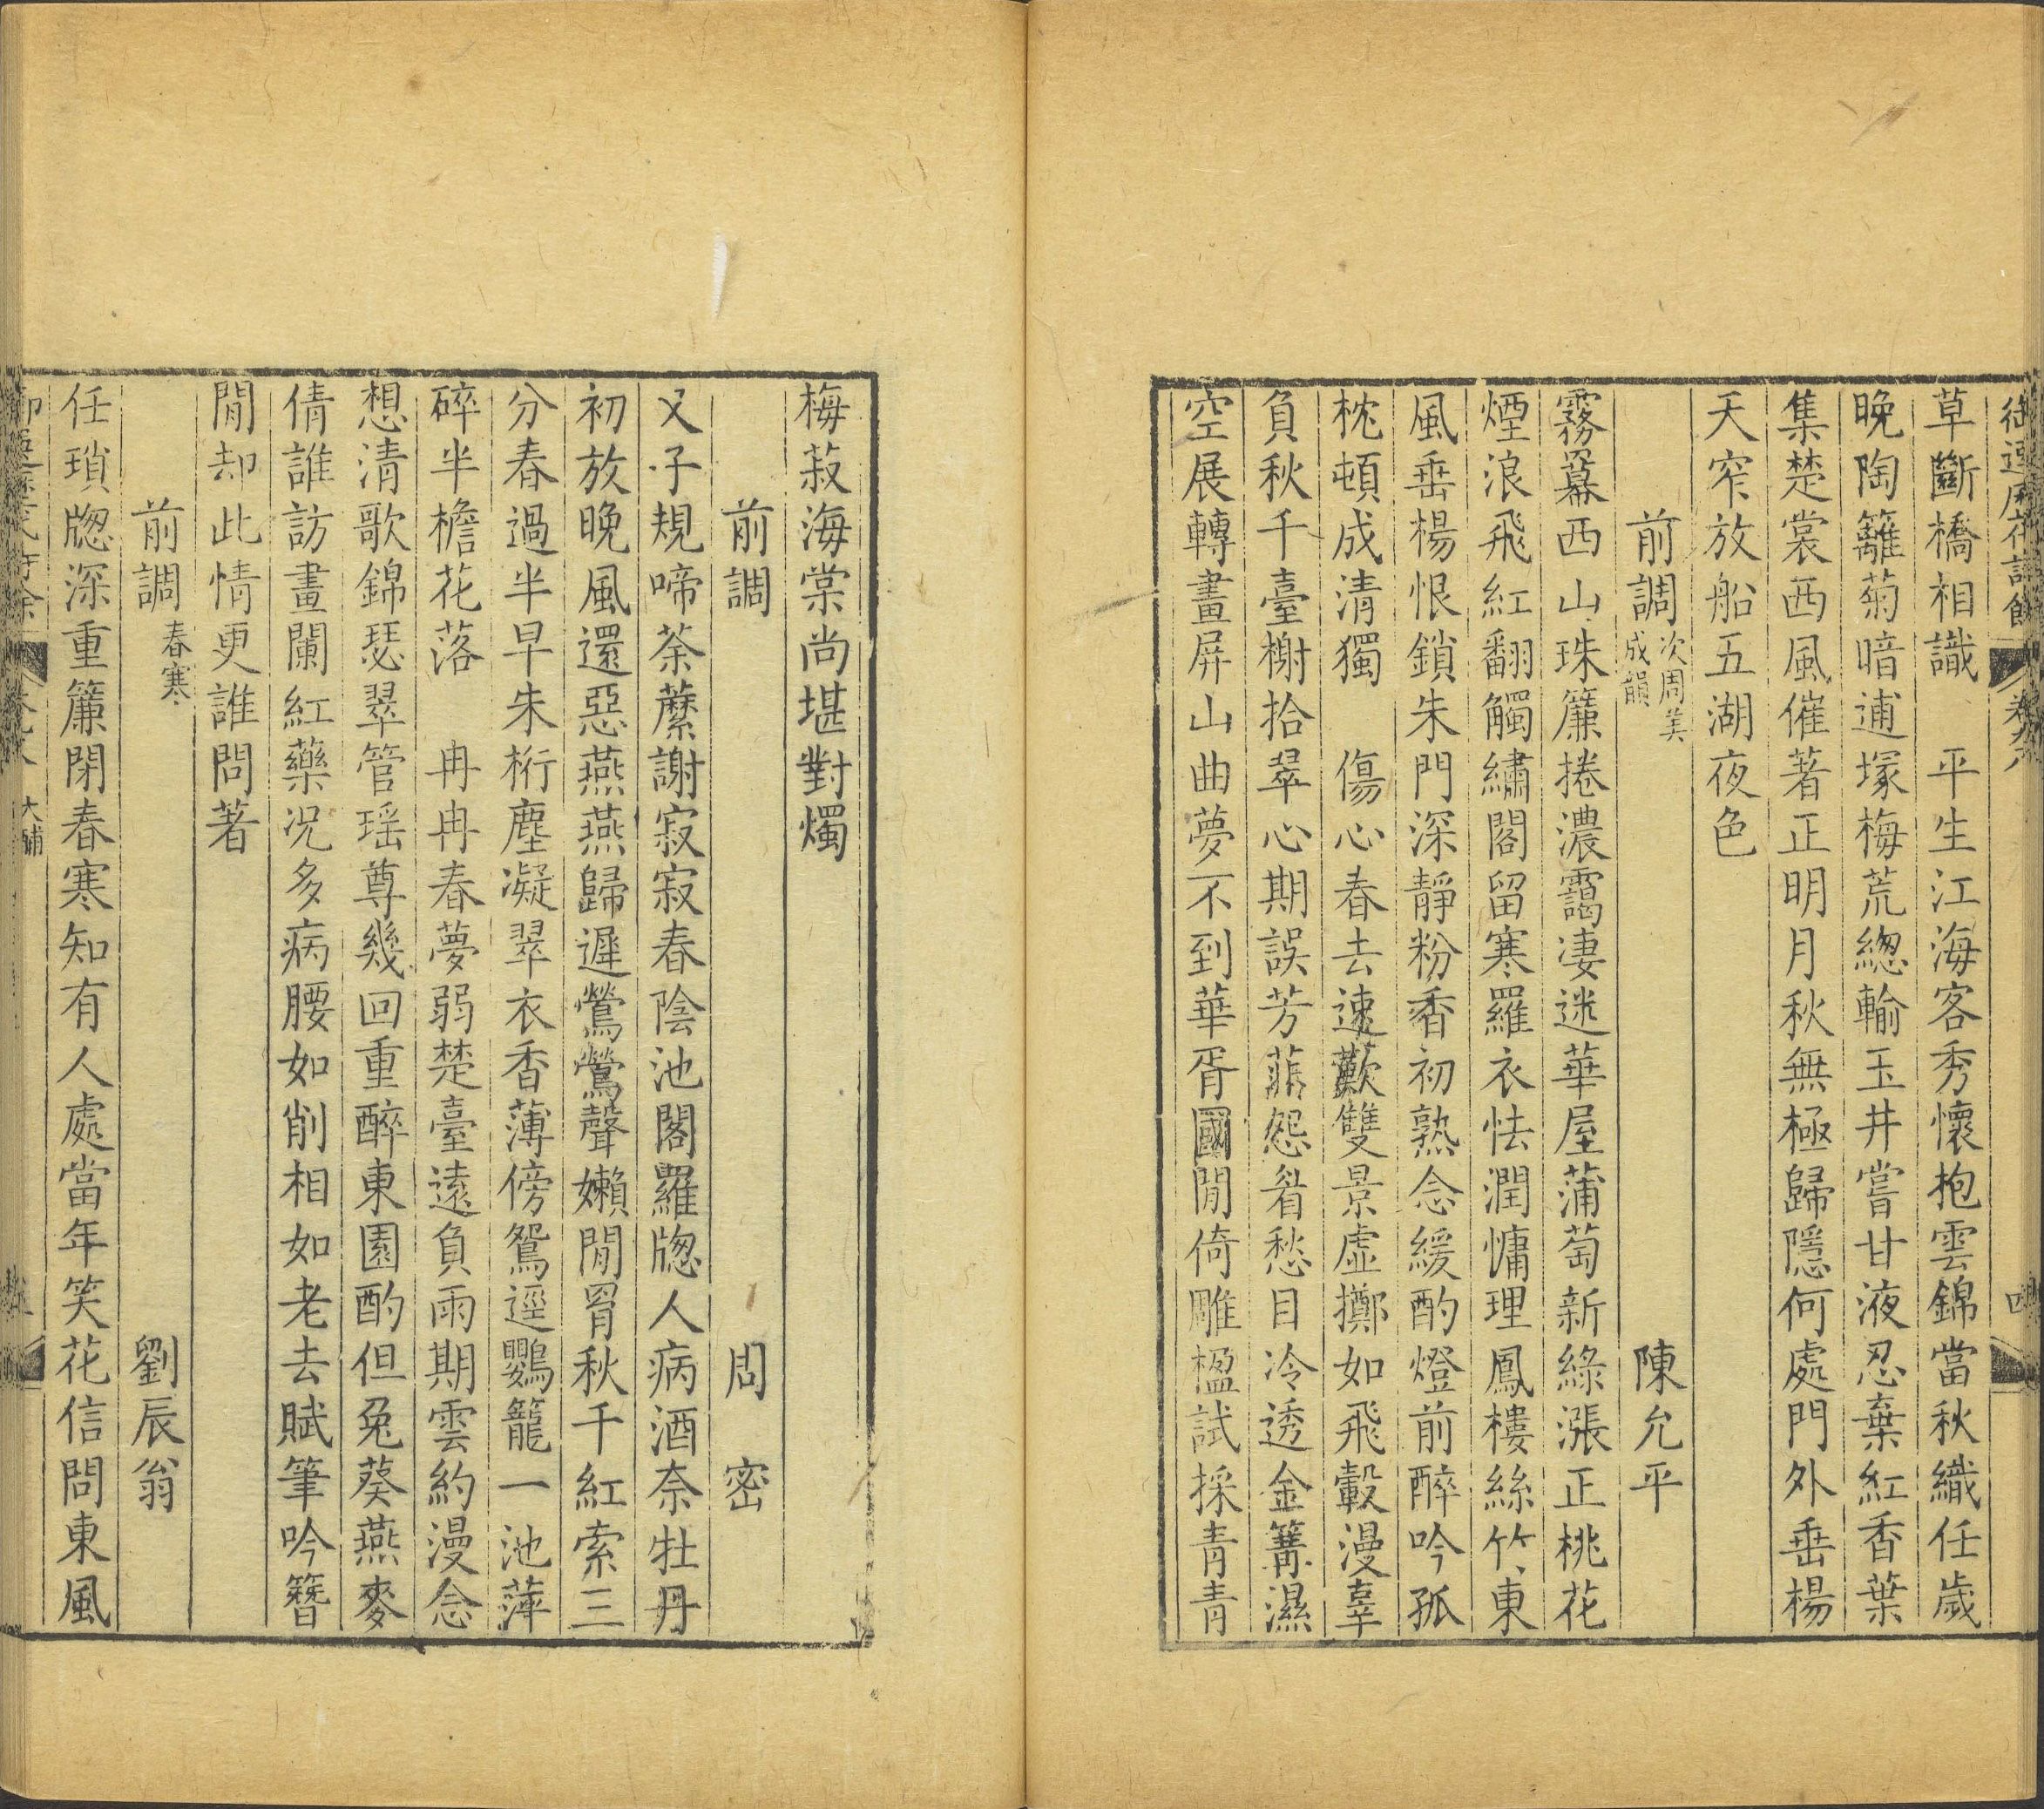 御選歷代詩餘 卷八
草斷橋相識　平生江海客秀懷抱雲錦當秋織任歲
晚陶籬菊暗逋塚梅荒緫輸玉井嘗甘液忍棄紅香葉
集楚裳西風催著正明月秋無極歸隱何處門外垂楊
天窄放船五湖夜色
前調 次周美成韻 陳允平
霧幕西山珠簾捲濃靄淒迷華屋蒲萄新綠漲正桃花
煙浪飛紅翻觸繡閣留寒羅衣怯潤慵理鳳樓絲竹東
風垂楊恨鎖朱門深靜粉香初熟念緩酌燈前醉吟孤
枕頓成清獨　傷心春去速歎雙景虛擲如飛轂漫辜
負秋千臺榭拾翠心期誤芳菲怨眉愁目冷透金篝濕
空展轉畫屏山曲夢不到華胥國閒倚雕楹試採青青
梅菽海棠尚堪對燭
前調 周密
又子規啼荼蘼謝寂寂春陰池閣羅牕人病酒奈牡丹
初放晚風還惡燕燕歸遲鶯鶯聲嬾閒罥秋千紅索三
分春過半早朱桁塵凝翠衣香薄傍鴛逕鸚籠一池萍
碎半檐花落　冉冉春夢弱楚臺遠負雨期雲約漫念
想清歌錦瑟翠管瑤尊幾回重醉東園酌但兔葵燕麥
倩誰訪畫闌紅藥况多病腰如削相如老去賦筆吟簪
閒却此情更誰問著
前調 春寒 劉辰翁
任瑣牕深重簾閉春寒知有人處當年笑花信問東風
大酺